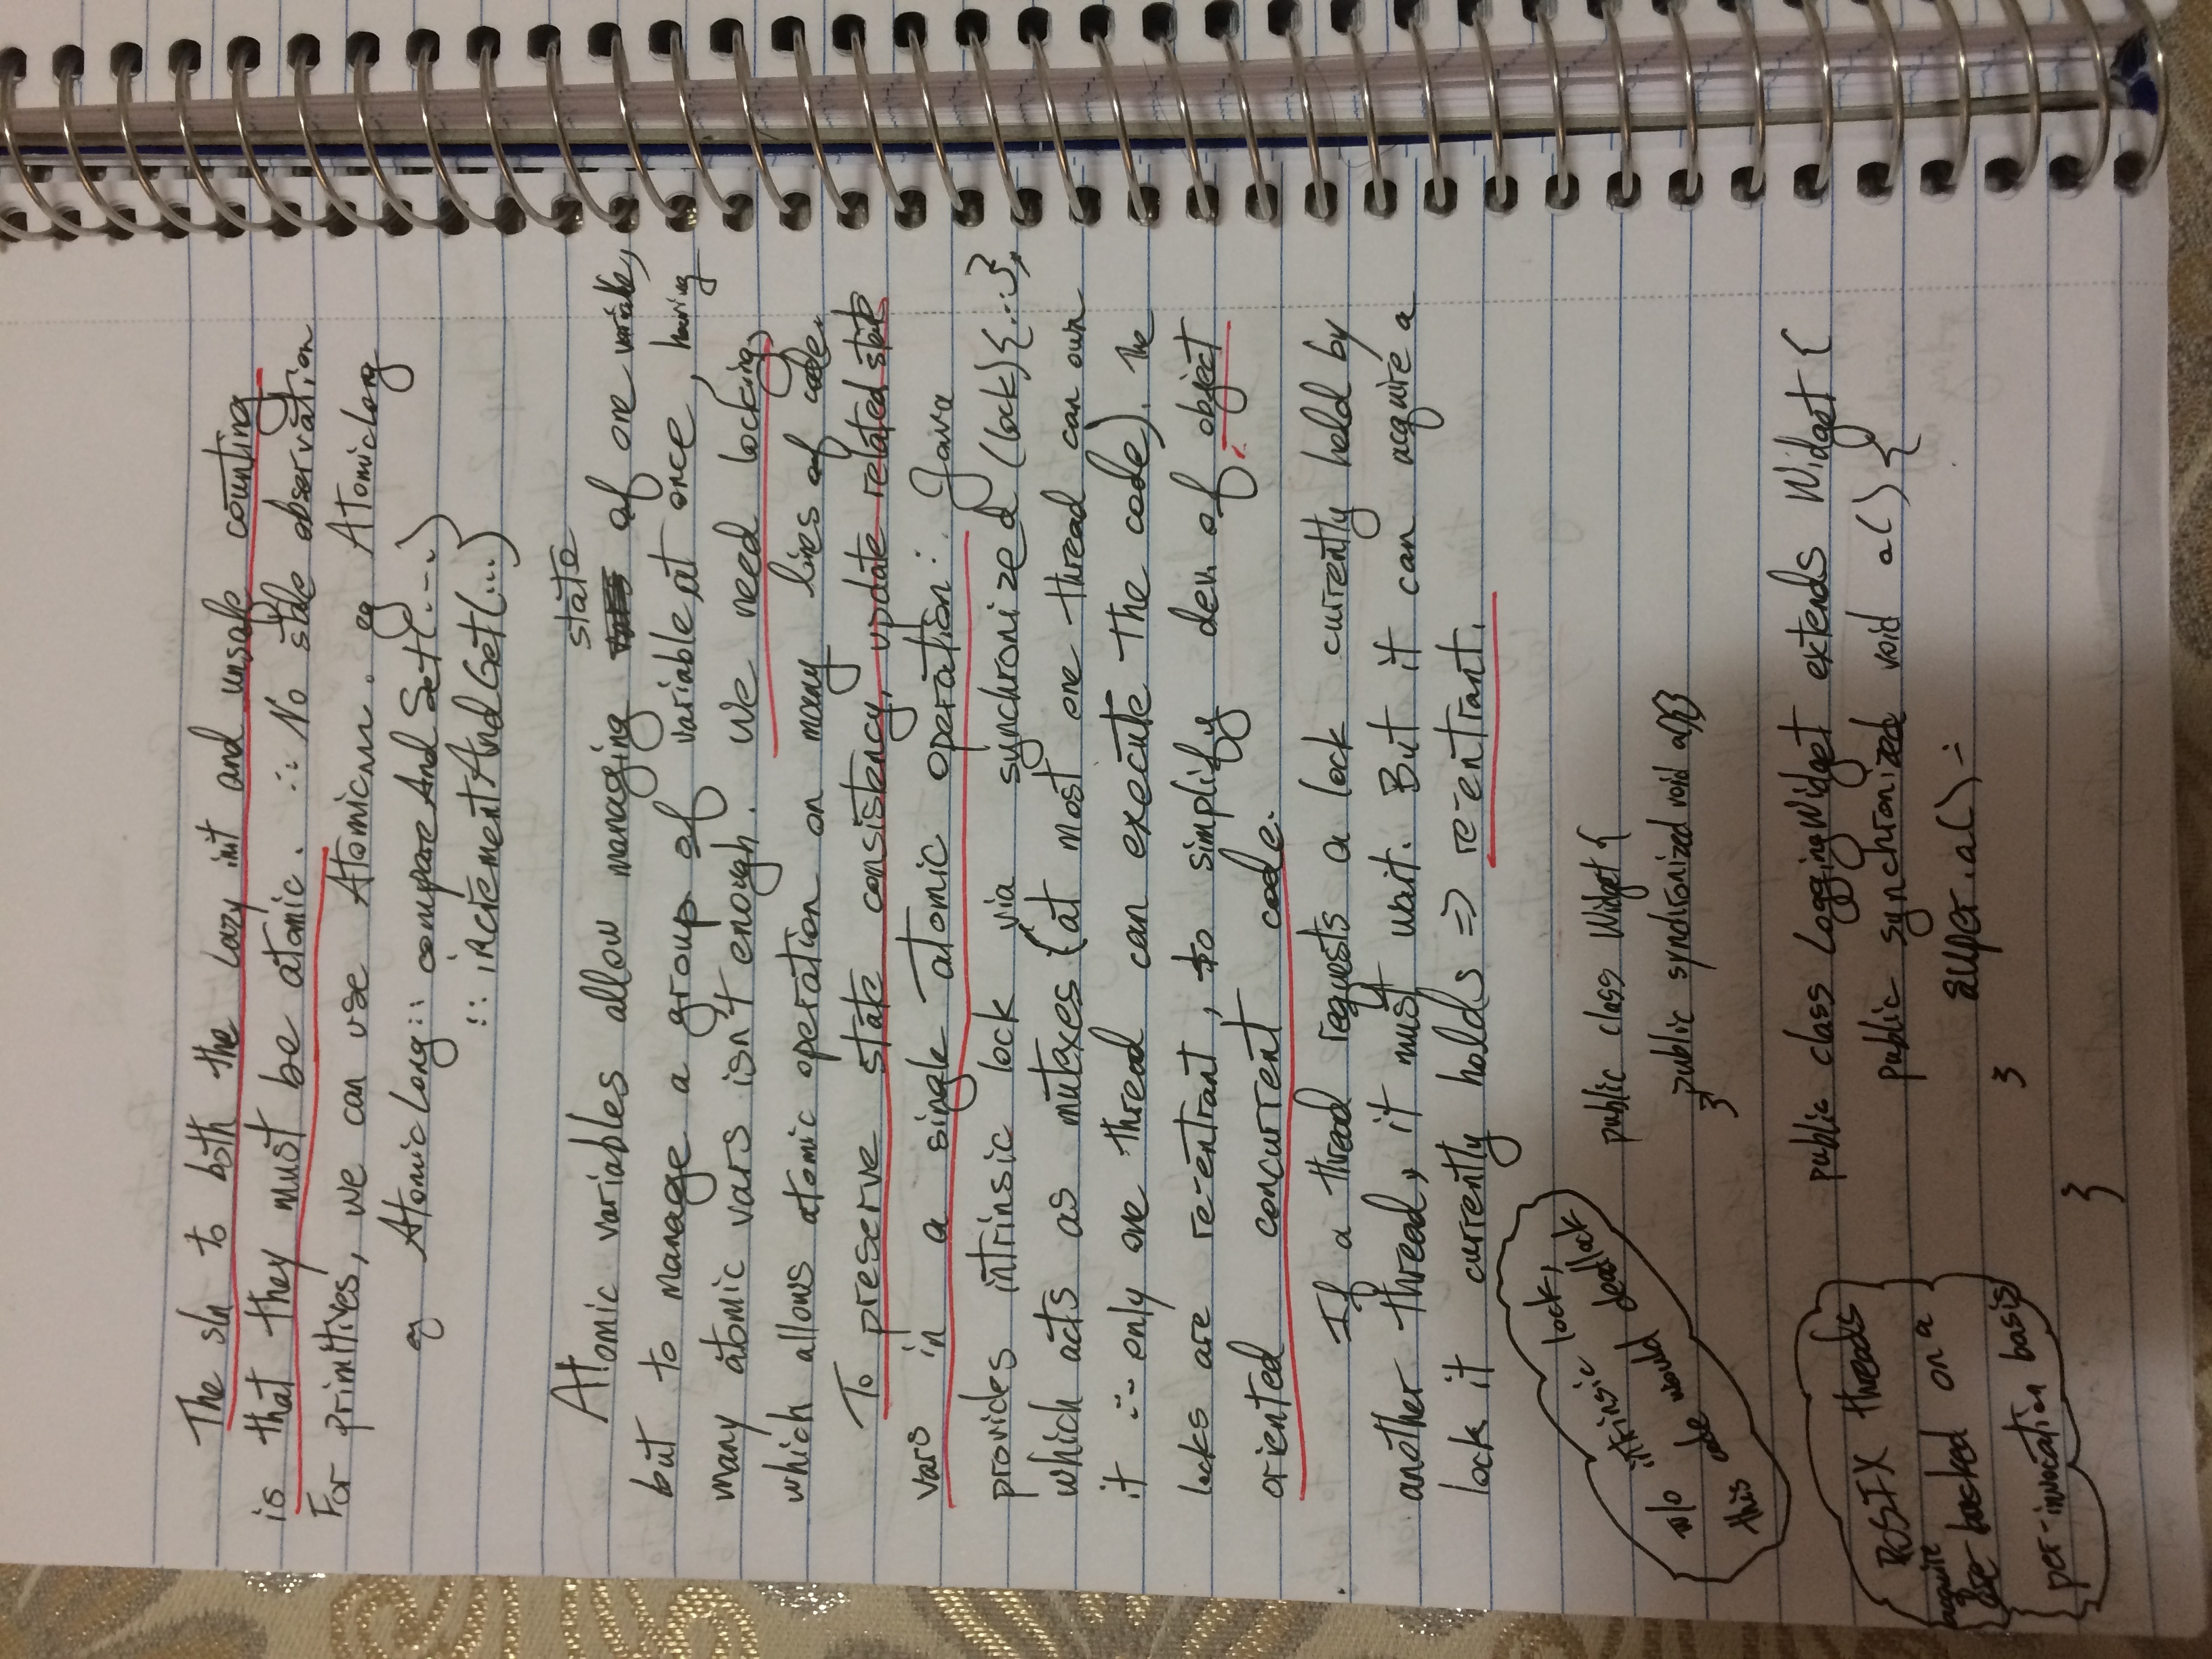 The sln to both the lazy init and unsafe counting
is that they must be atomic. ∴ No stale observation
For primitives, we can use Atomic~~. eg AtomicLong
eg AtomicLong:: compareAndSet(...)
:: incrementAndGet(...)
Atomic variables allow managing state of one variable,
but to manage a group of variable at once, having
many atomic vars isn't enough. We need locking,
which allows atomic operation on many lines of code.
To preserve state consistency, update related state
vars in a single atomic operation. Java
provides intrinsic lock via synchronized (lock){...},
which acts as mutexes (at most one thread can own
it ∴ only one thread can execute the code). The
locks are re-entrant, to simplify dev. of object
oriented concurrent code.
If a thread requests a lock currently held by
another thread, it must wait. But it can acquire a
lock it currently holds => re-entrant.
w/o intrinsic lock,
this code would deadlock
public class Widget {
public synchronized void a(){}
}
public class LoggingWidget extends Widget {
public synchronized void a() {
super.a();
}
}
POSIX threads
acquire
on a
per-invocation basis